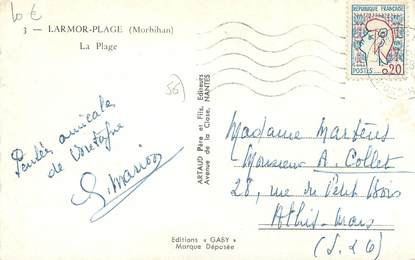 10 €
3 — LARMOR-PLAGE (Morbihan)
La Plage
56)
Pensées amicales
de Bretagne
G. Marion
ARTAUD Père et Fils, Editeurs
Avenue de la Close, NANTES
REPUBLIQUE FRANÇAISE
POSTES 0,20
Madame Martens
Monsieur A. Collet
28, rue du Petit Bois
Athis-Mons
(S. & O)
Editions « GABY »
Marque Déposée